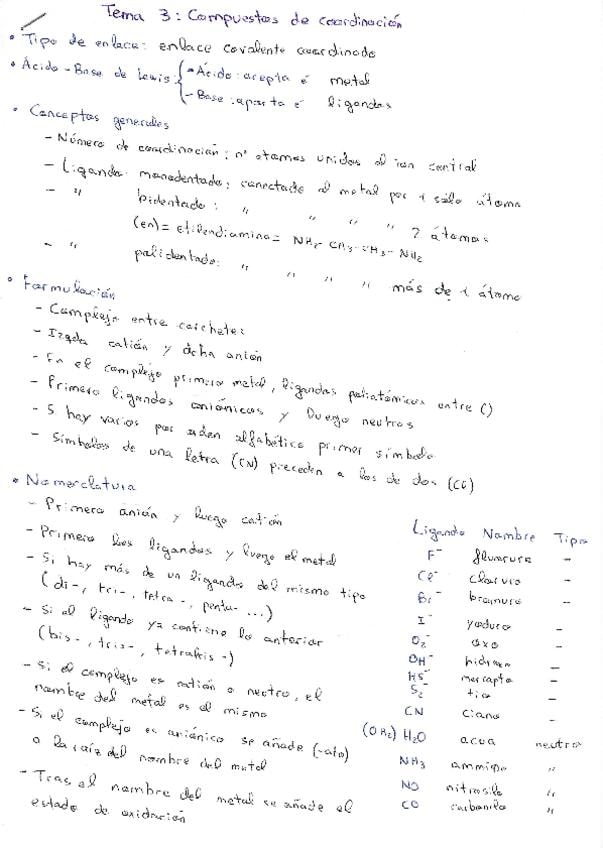 Tema 3: Compuestos de coordinación
• Tipo de enlace: enlace covalente coordinado
• Ácido-Base de Lewis: - Ácido: acepta é metal
- Base: aporta é ligandos
• Conceptos generales
- Número de coordinación: nº átomos unidos al ion central
- Ligando monodentado: conectado al metal por 1 sólo átomo
- " bidentado: " " " " 2 átomos
(en) = etilendiamina = NH2-CH3-CH3-NH2
- " polidentado: " " " " más de 1 átomo
• Formulación
- Complejo entre corchetes
- Izqda catión y dcha anión
- En el complejo primero metal, ligandos poliatómicos entre ()
- Primero ligandos aniónicos y luego neutros
- Si hay varios por orden alfabético primer símbolo
- Símbolos de una letra (CN) preceden a los de dos (Cl)
• Nomenclatura
- Primero anión y luego catión
- Primero los ligandos y luego el metal
- Si hay más de un ligando del mismo tipo
(di-, tri-, tetra-, penta-...)
- Si el ligando ya contiene lo anterior
(bis-, tris-, tetrakis-)
- Si el complejo es catión o neutro, el
nombre del metal es el mismo
- Si el complejo es aniónico se añade (-ato)
a la raíz del nombre del metal
- Tras el nombre del metal se añade el
estado de oxidación
Ligando Nombre Tipo
F⁻ fluoruro -
Cl⁻ cloruro -
Br⁻ bromuro -
I⁻ yoduro -
O2⁻ oxo -
OH⁻ hidroxo -
HS⁻ mercapto -
S2⁻ tio -
CN ciano -
(OH2) H2O acua neutro
NH3 ammino "
NO nitrosilo "
CO carbonilo "